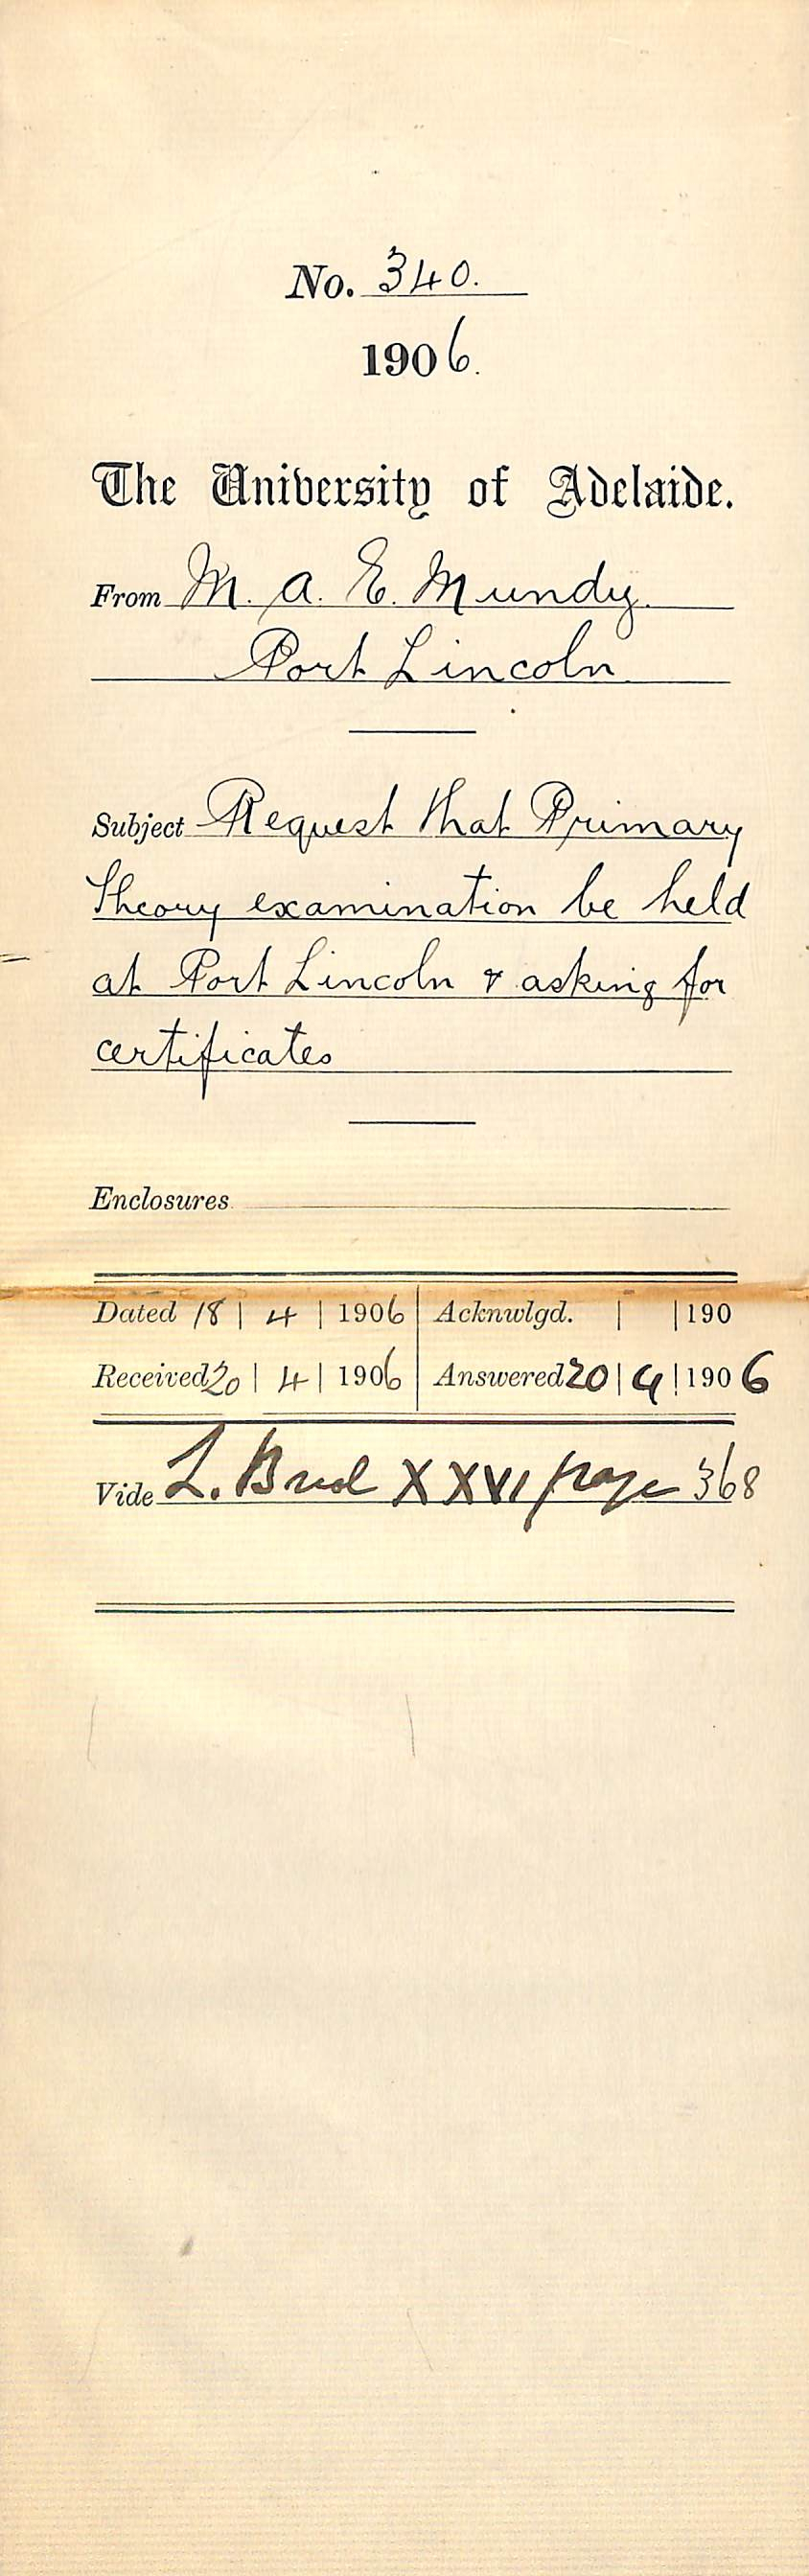 No. 340.
1906.
The University of Adelaide.
From M. A. E. Mundy.
Port Lincoln
Subject Request that Primary
Theory examination be held
at Port Lincoln & asking for
certificates
Enclosures
Dated 18 | 4 | 1906 Acknwlgd. | | 190
Received 20 | 4 | 1906 Answered 20 | 4 | 1906
Vide L. XXVI page 368